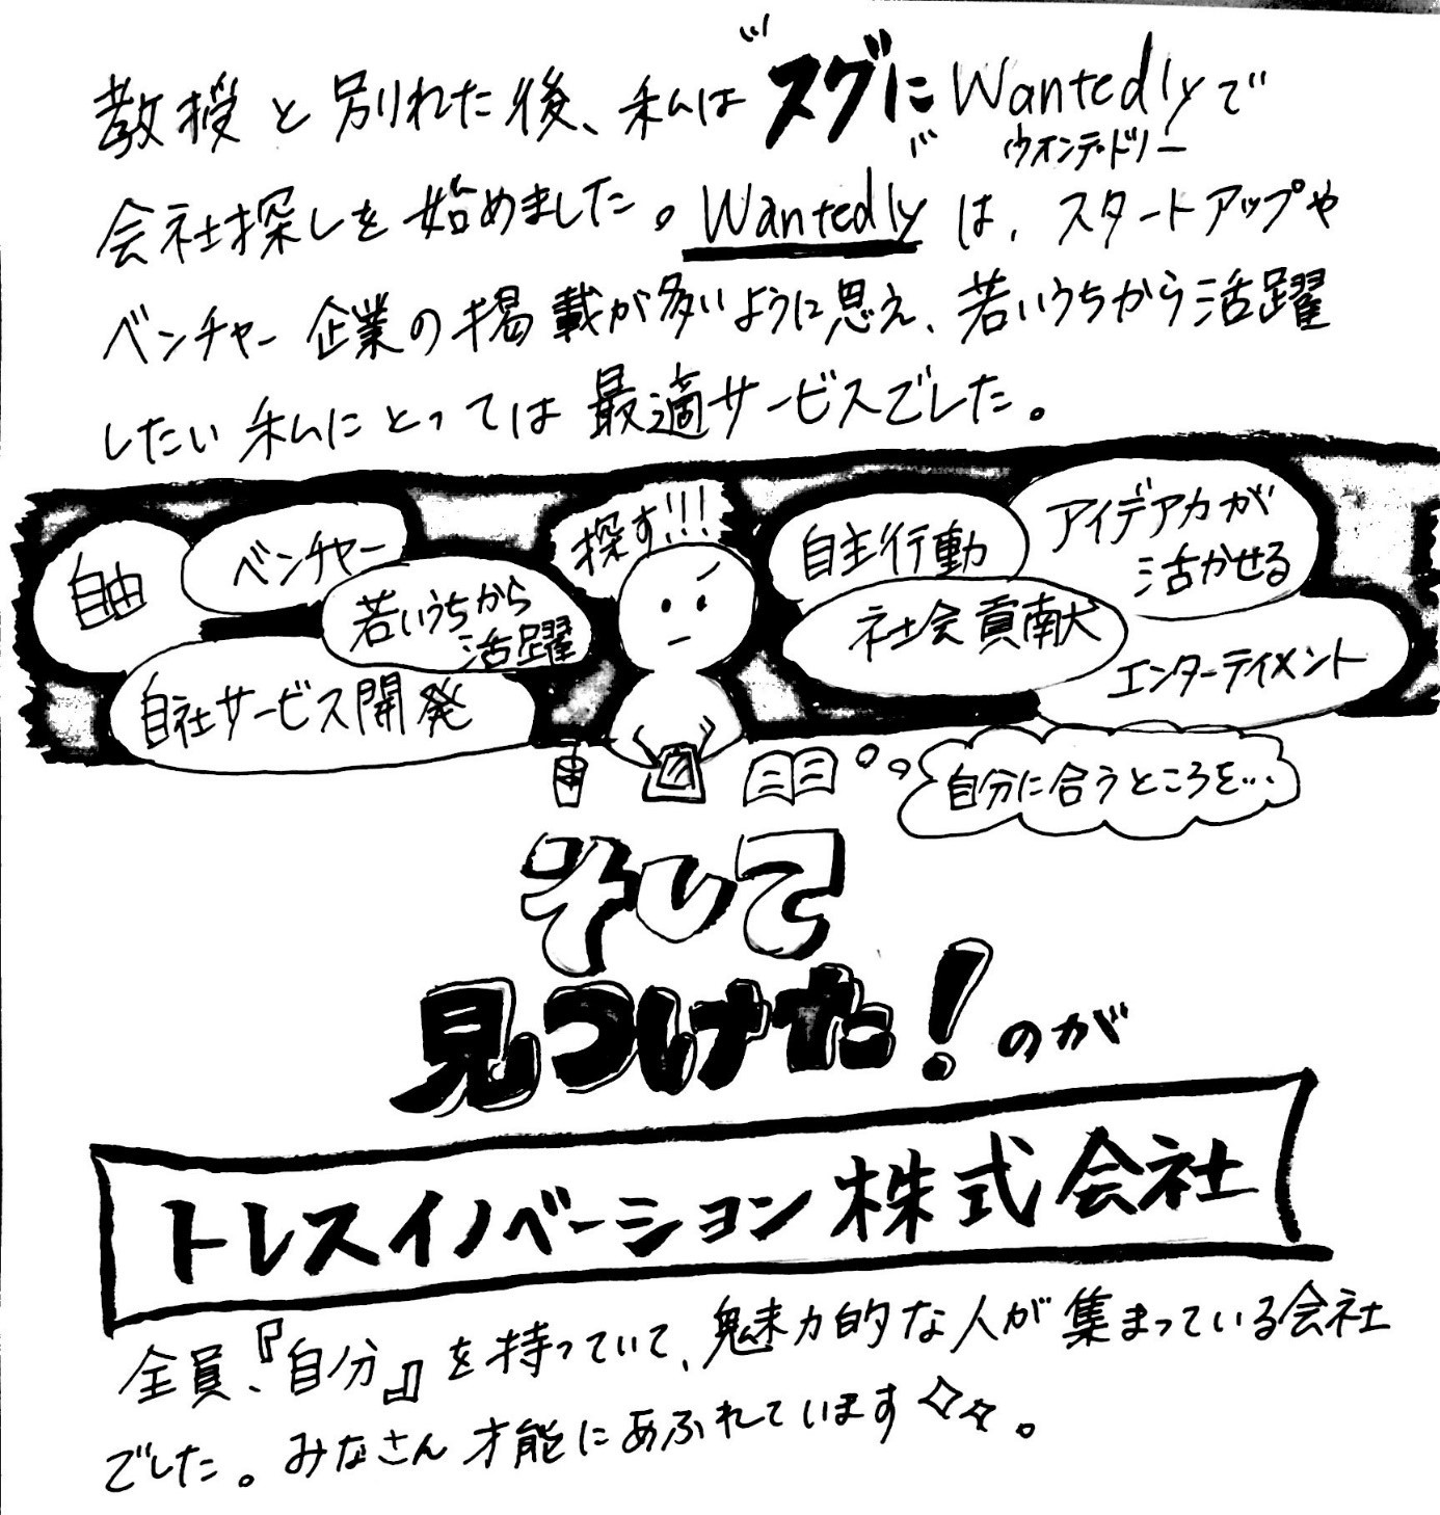 教授と別れた後、私は"スグに"Wantedlyで
ウォンテッドリー
会社探しを始めました。Wantedlyは、スタートアップや
ベンチャー企業の掲載が多いように思え、若いうちから活躍
したい私にとっては最適サービスでした。
自由
ベンチャー
若いうちから
活躍
自社サービス開発
探す!!!
自主行動
アイデア力が
活かせる
社会貢献
エンターテイメント
自分に合うところを…
そして
見つけた!のが
トレスイノベーション株式会社
全員、『自分』を持っていて、魅力的な人が集まっている会社
でした。みなさん才能にあふれています✧✧。